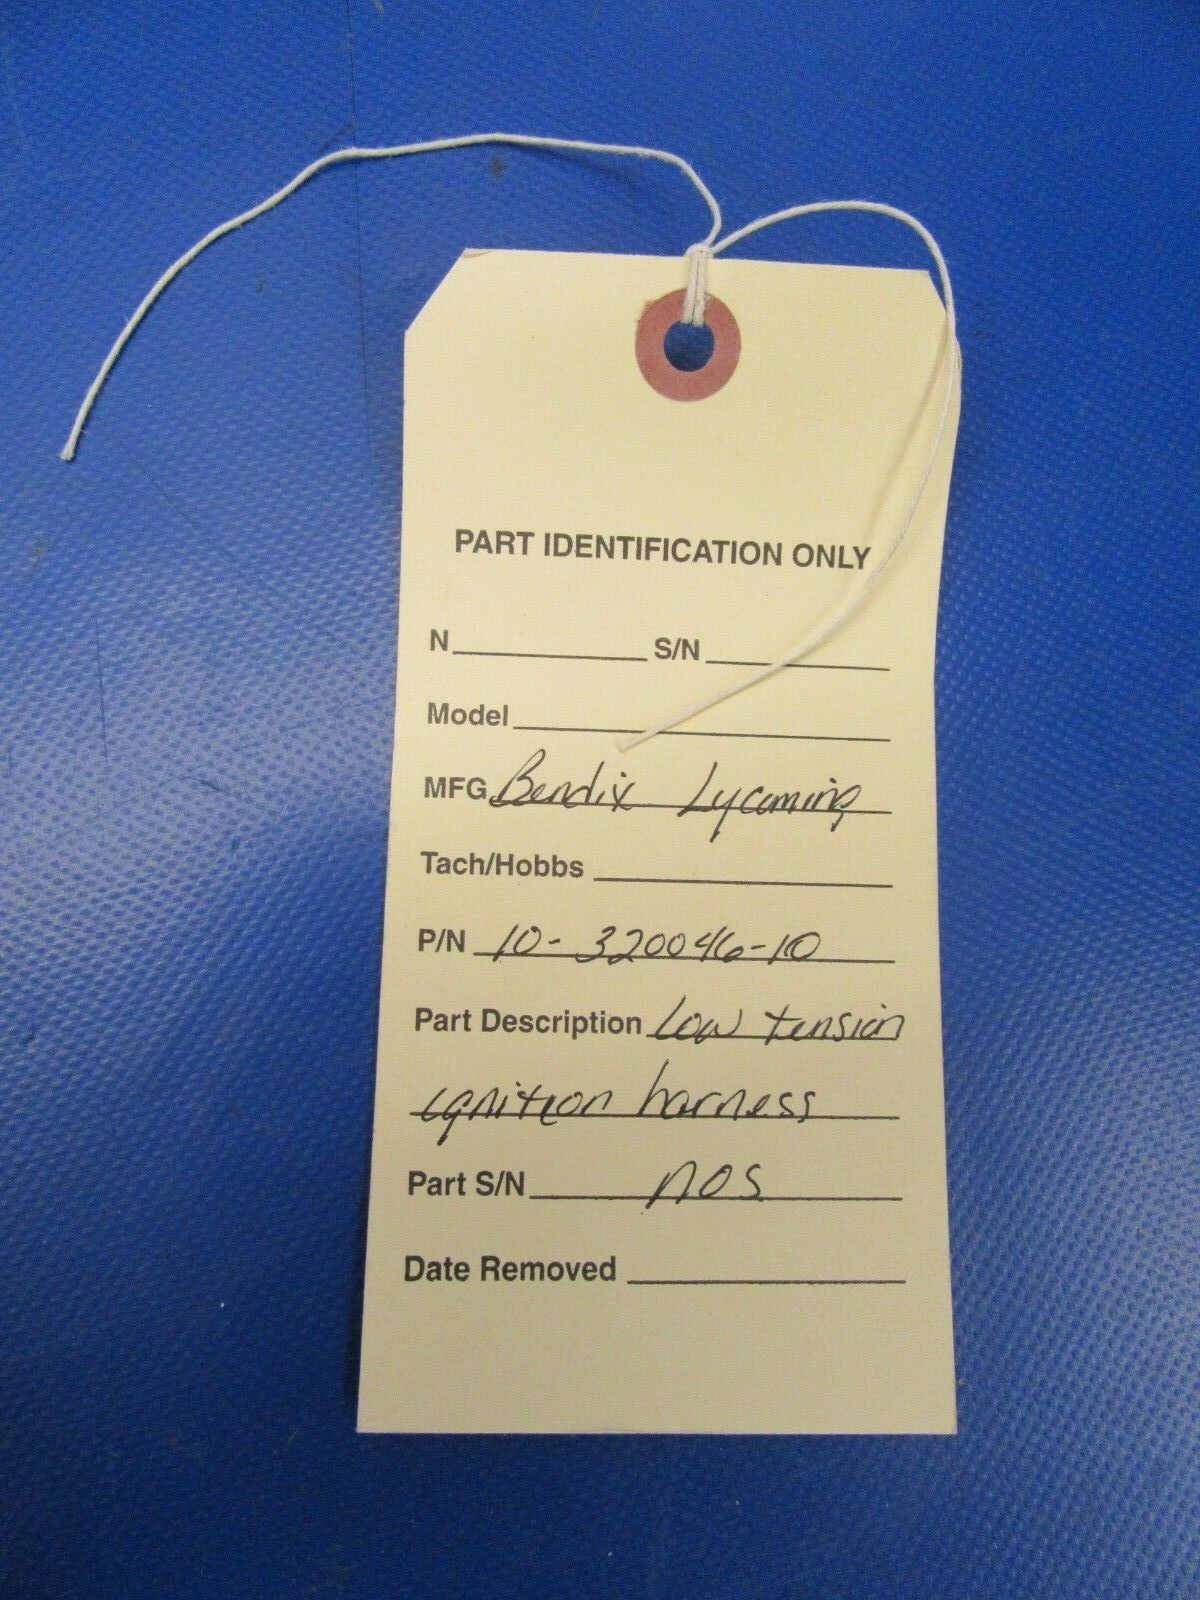 PART IDENTIFICATION ONLY
N S/N
Model
MFG Bendix Lycoming
Tach/Hobbs
P/N 10-320046-10
Part Description Low tension
ignition harness
Part S/N NOS
Date Removed